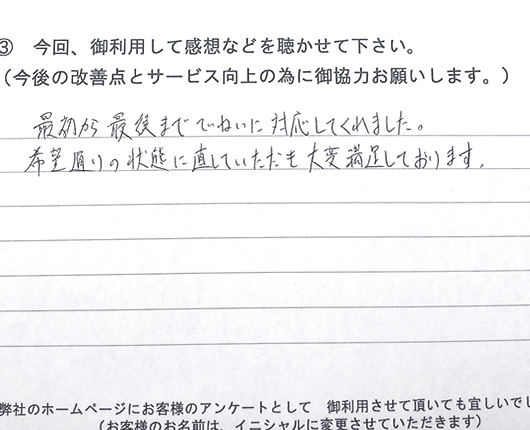 ③ 今回、御利用して感想などを聴かせて下さい。
(今後の改善点とサービス向上の為に御協力お願いします。)
最初から最後までていねいに対応してくれました。
希望通りの状態に直していただき大変満足しております。
弊社のホームページにお客様のアンケートとして 御利用させて頂いても宜しいでし
(お客様のお名前は、イニシャルに変更させていただきます)